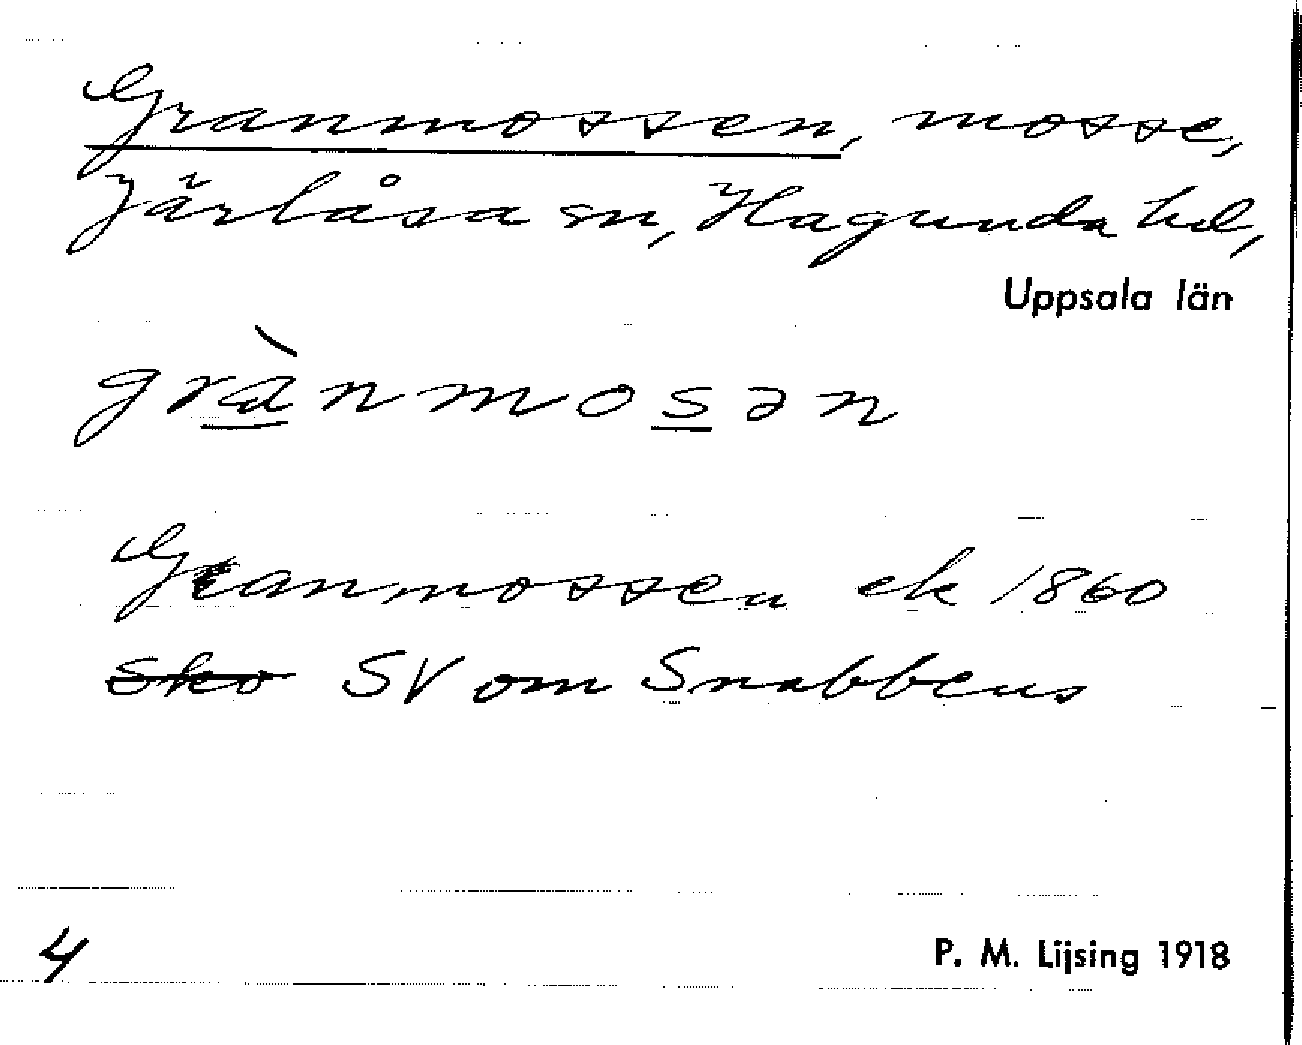 Granmossen, mosse,
Järlåsa sn, Hagunda hd,
Uppsala län
grànmosən
Granmossen ek 1860
Sko SV om Snabbens
4
P. M. Lijsing 1918